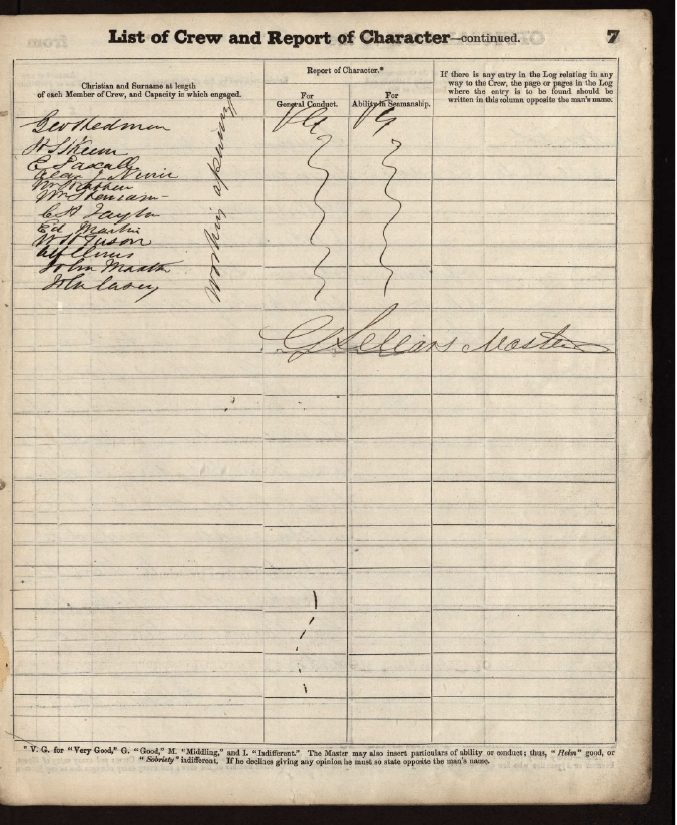 List of Crew and Report of Character—continued. 7
Christian and Surname at length
of each Member of Crew, and Capacity in which engaged.
Report of Character.*
For
General Conduct.
For
Ability in Seamanship.
If there is any entry in the Log relating in any
way to the Crew, the page or pages in the Log
where the entry is to be found should be
written in this column opposite the man's name.
Geo Hedman
VG VG
H Skeem
E Pascall
Wm
Wm
C H Taylor
Ed Martin
W H
Alf
John
John Casey
Working
Master
* V. G. for "Very Good," G. "Good," M. "Middling," and I. "Indifferent." The Master may also insert particulars of ability or conduct; thus, "Helm" good, or
"Sobriety" indifferent. If he declines giving any opinion he must so state opposite the man's name.